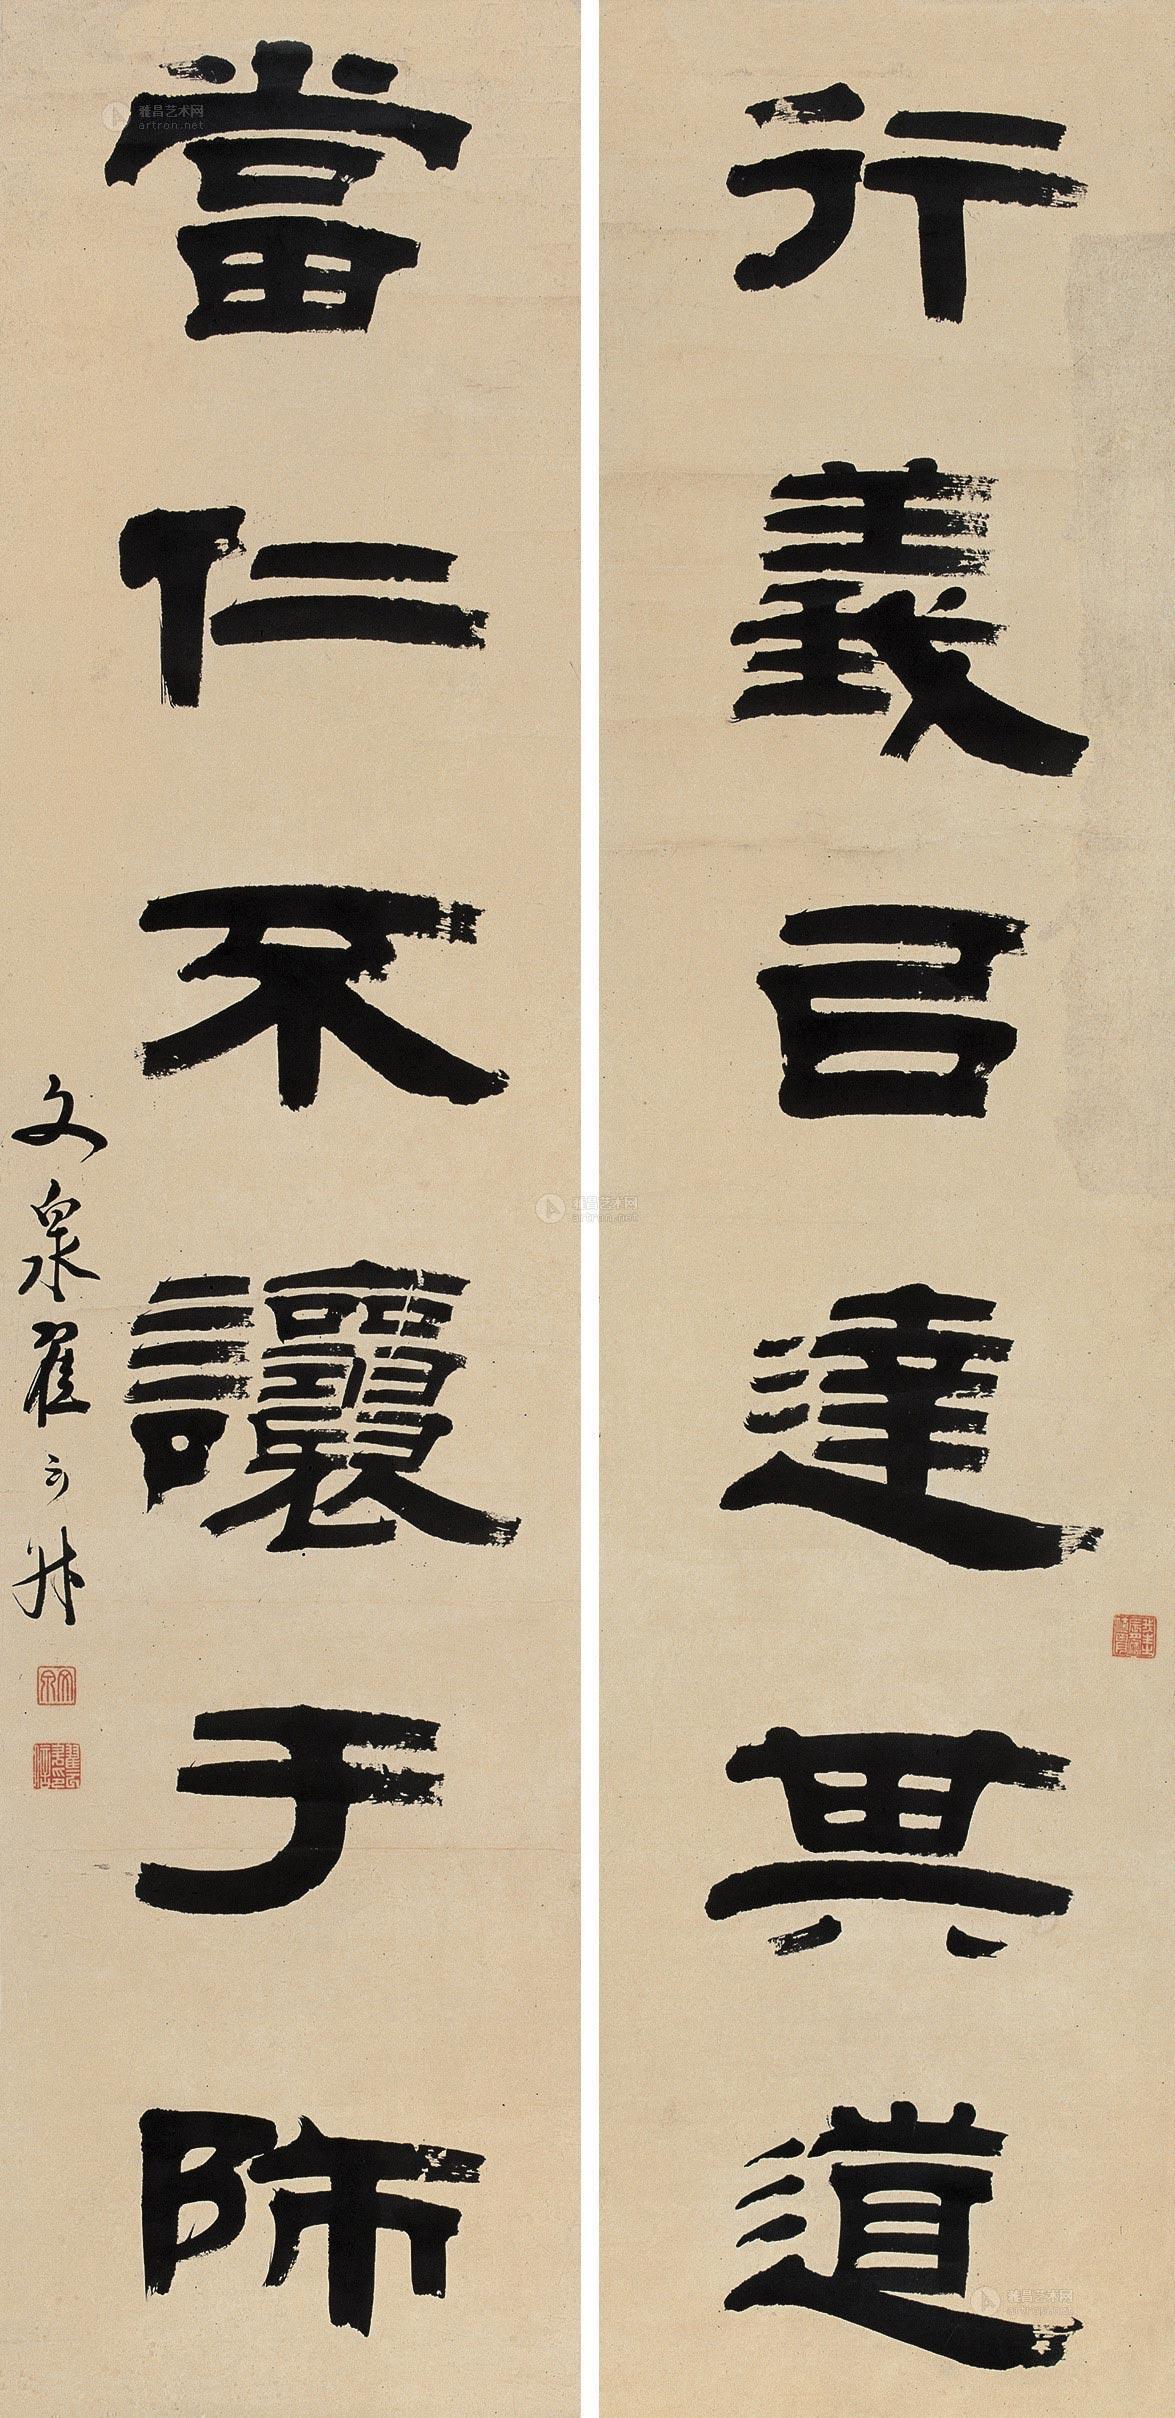 行義㠯達其道
當仁不讓于師
文泉翟云升
文泉
雅昌艺术网
artron.net
雅昌艺术网
artron.net
雅昌艺术网
artron.net